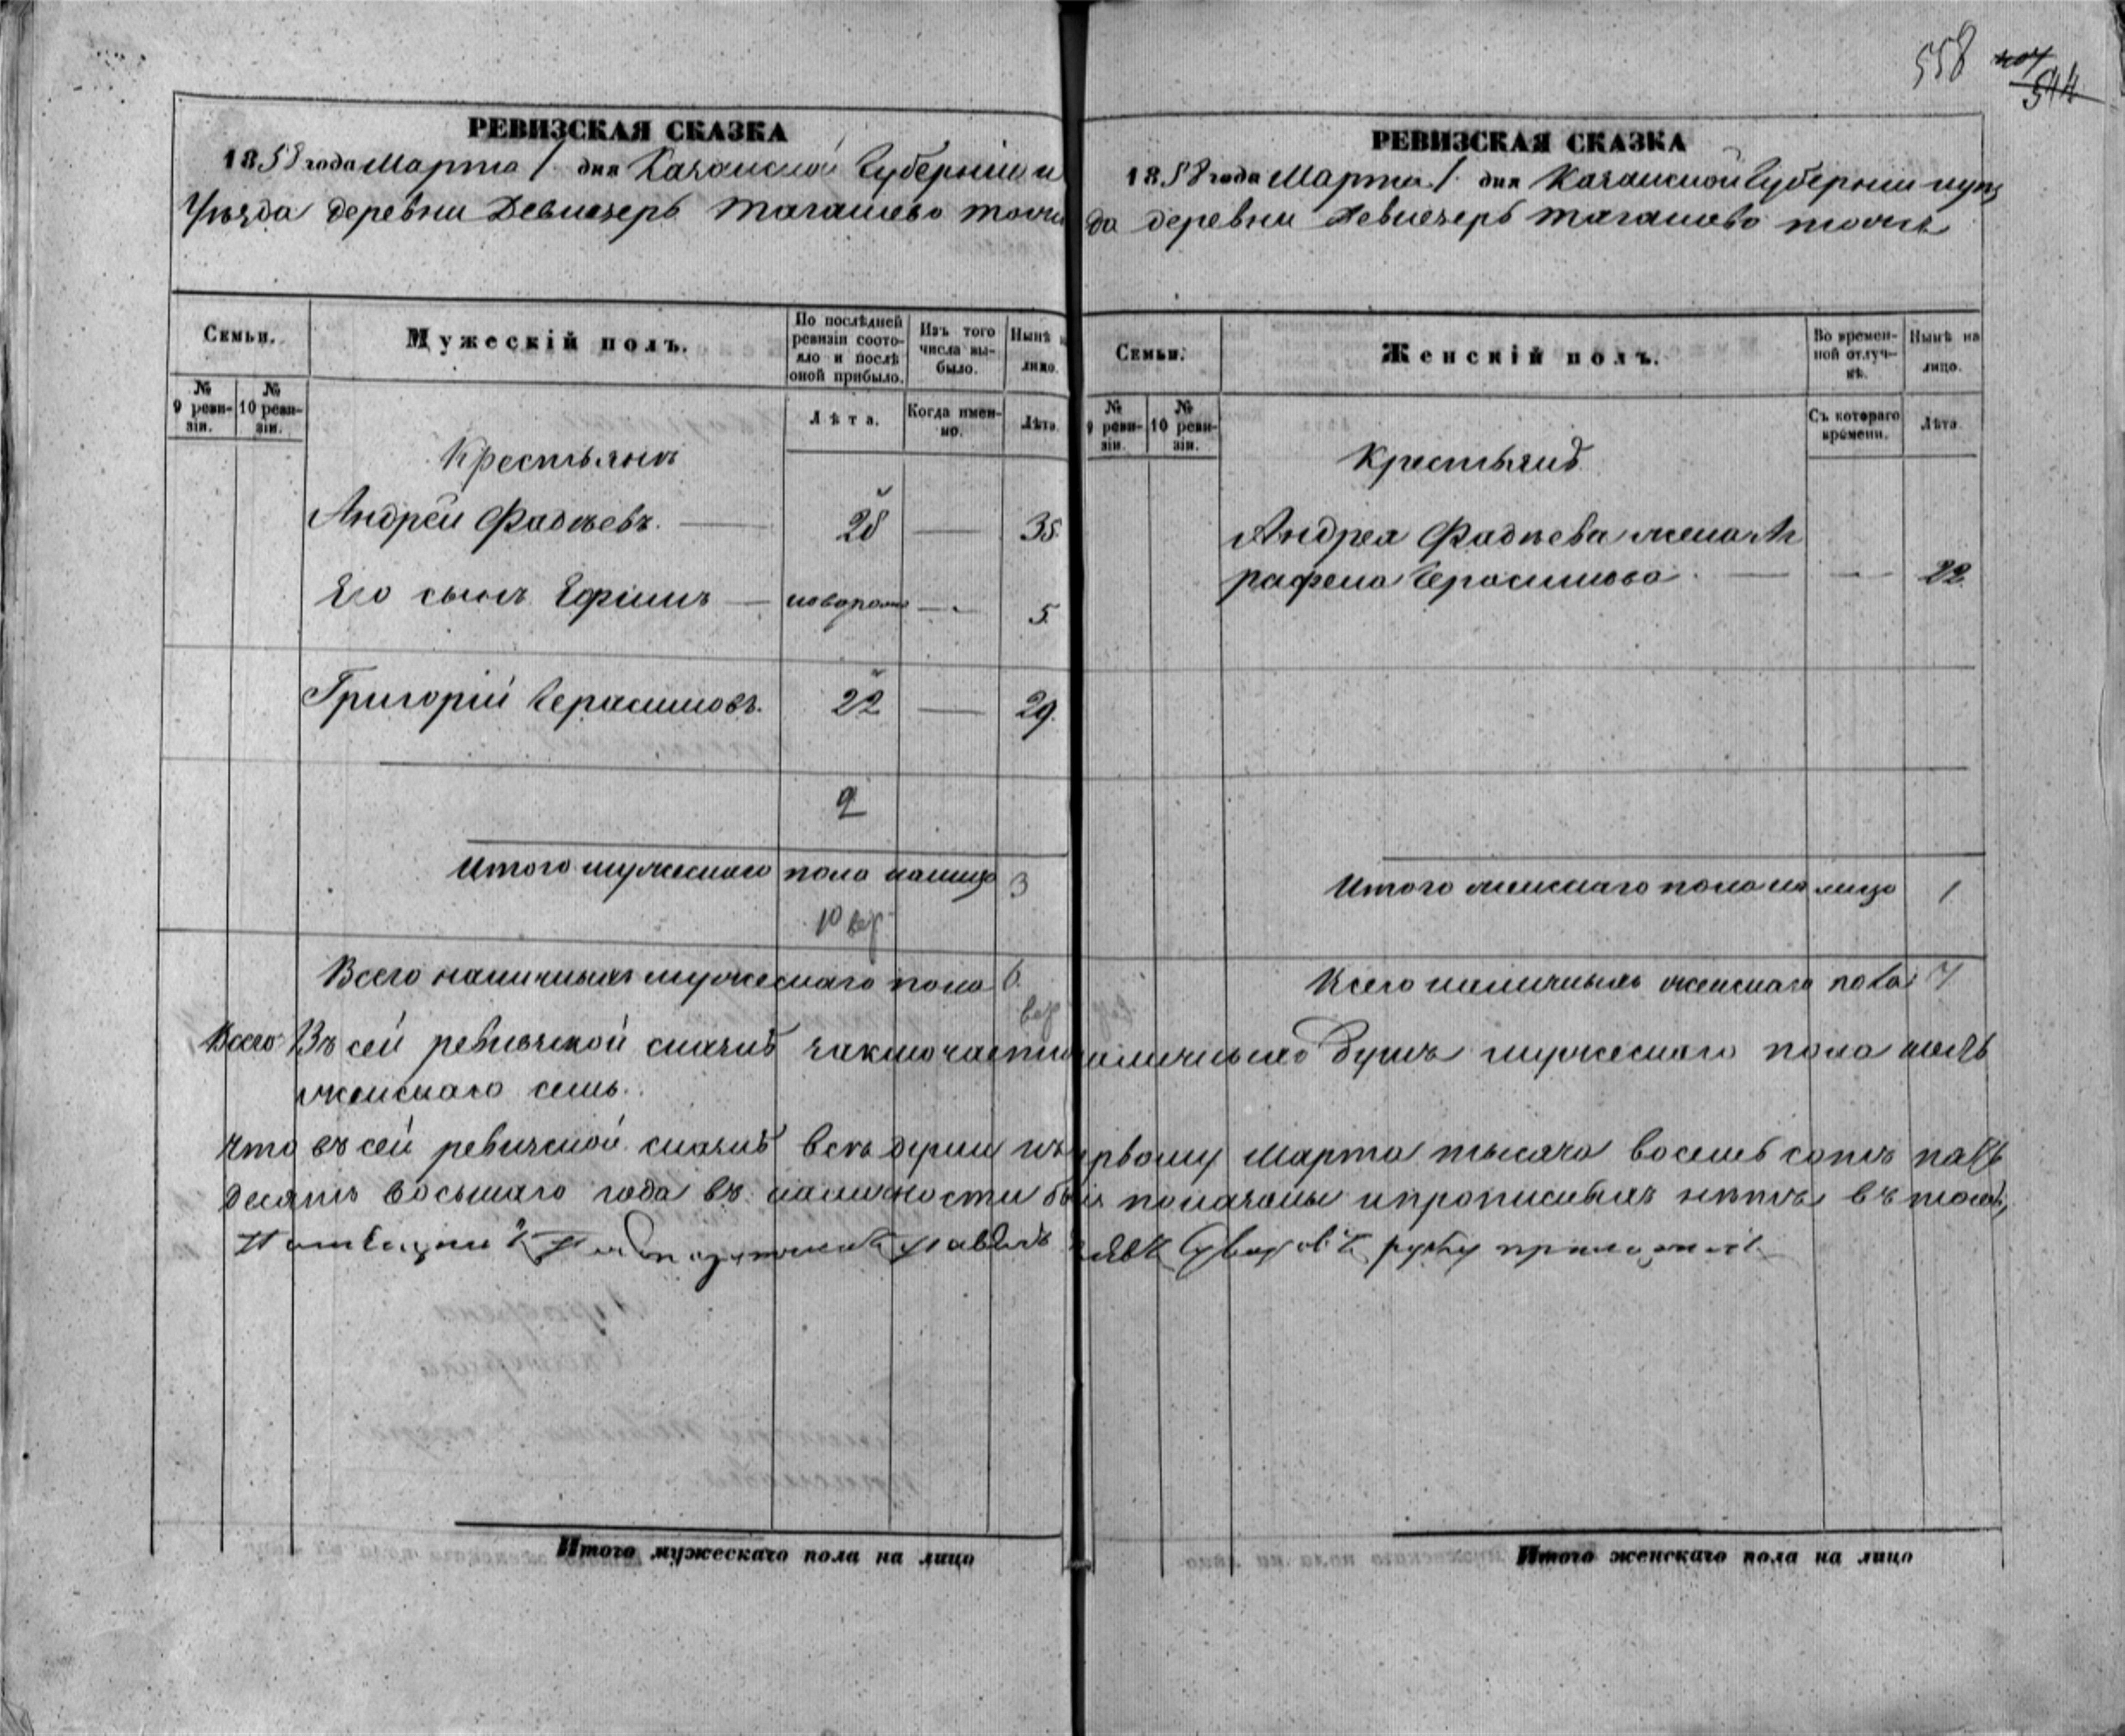 558
544
РЕВИЗСКАЯ СКАЗКА
1858 года Марта 1 дня Казанской Губерніи и
Уѣзда деревни Девлезерь Тагашево тожъ
Семьи.
Мужескій полъ.
По послѣдней ревизіи состояло и послѣ оной прибыло.
Изъ того числа выбыло.
Нынѣ на лицо.
№ 9 ревизіи.
№ 10 ревизіи.
Лѣта.
Когда именно.
Лѣта.
Крестьянъ
Андрей Фадѣевъ. 28 35.
Его сынъ Ефимъ новорожд 5.
Григорій Герасимовъ. 22 29.
2
Итого мужескаго пола налицо 3
Всего наличныхъ мужескаго пола 6.
РЕВИЗСКАЯ СКАЗКА
1858 года Марта 1 дня Казанской Губерніи иуѣз
да деревни Девлезерь Тагашево тожъ
Семьи.
Женскій полъ.
Во временной отлучкѣ.
Нынѣ на лицо.
№ 9 ревизіи.
№ 10 ревизіи.
Съ котораго времени.
Лѣта.
Крестьянъ
Андрея Фадѣева жена Аг
рафена Герасимова 22.
Итого женскаго пола на лицо 1
Всего наличныхъ женскаго пола 7
Всего Въ сей ревизской сказкѣ заключается наличныхъ душъ мужескаго пола шесть
женскаго семь.
Что въ сей ревизской сказкѣ всѣ души къ первому Марта тысяча восемь сотъ пять
десятъ восьмаго года въ наличности бывшія показаны ипрописныхъ нѣтъ въ томъ
руку приложилъ
Итого мужескаго пола на лицо
Итого женскаго пола на лицо